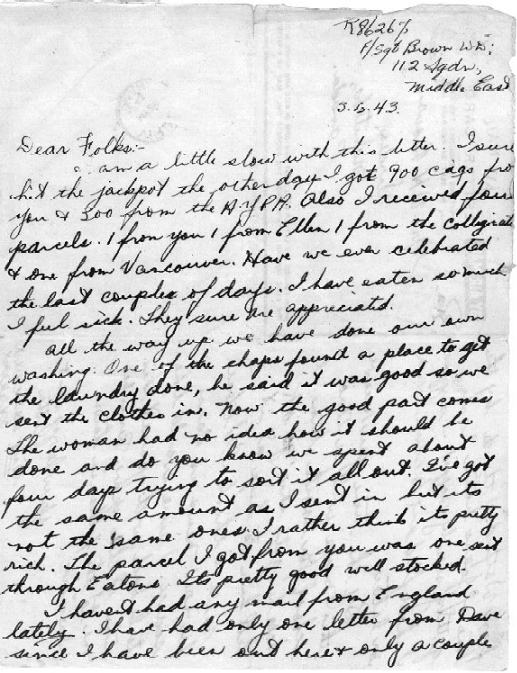 R86267
F/Sgt Brown W.D;
112 Sqdn,
Middle East
3.5.43.
Dear Folks:-
I am a little slow with this letter. I sure
hit the jackpot the other day I got 900 cigs fro
you & 300 from the A.Y.P.A. Also I received four
parcels. 1 from you 1 from Ellen 1 from the Collegiate
& one from Vancouver. Have we ever celebrated
the last couple of days. I have eaten so much
I feel sick. They sure are appreciated.
All the way up we have done our own
washing. One of the chaps found a place to get
the laundry done, he said it was good so we
sent the clothes in. Now the good part comes
The woman had no idea how it should be
done and do you know we spent about
four days trying to sort it all out. I've got
the same amount as I sent in but its
not the same ones. I rather think its pretty
rich. The parcel I got from you was one sent
through Eatons. Its pretty good will stocked.
I havent had any mail from England
lately. I have had only one letter from Dave
since I have been out here & only a couple